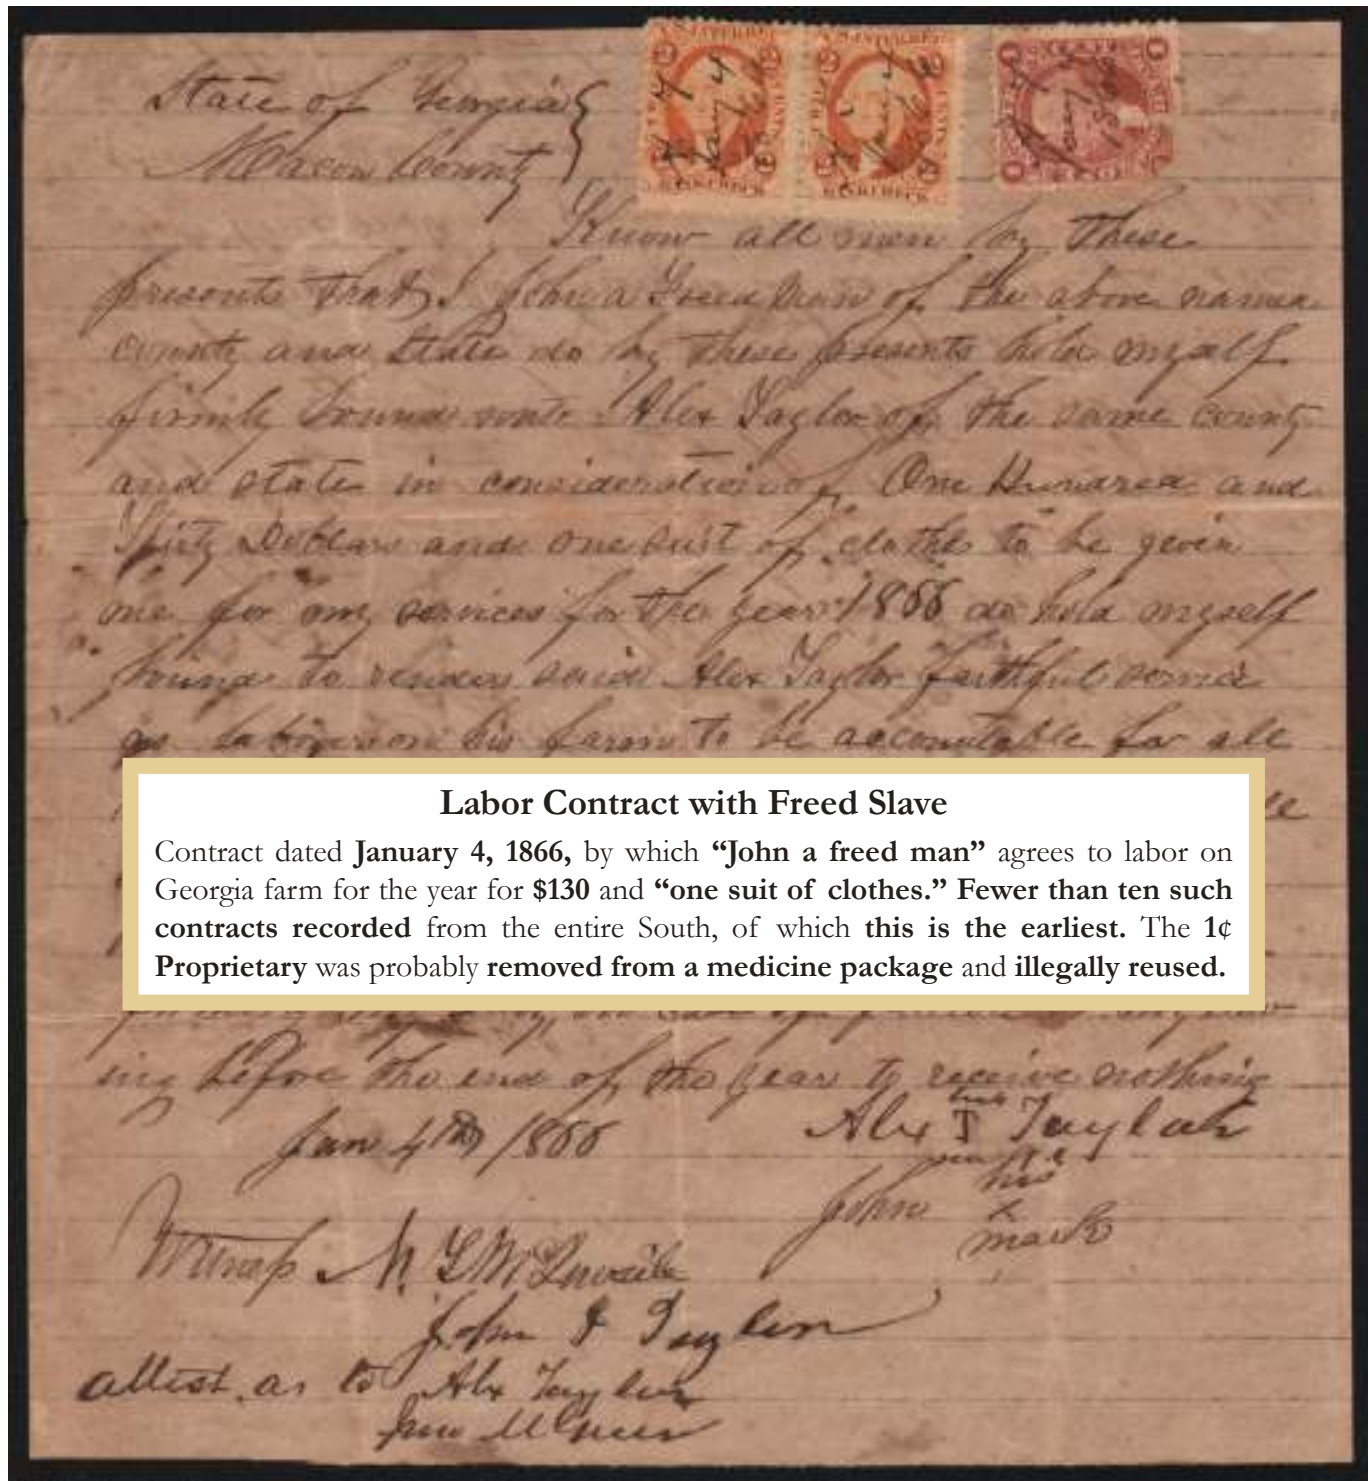 State of Georgia
Macon County
U.S. INTER. REV.
BANK CHECK
U.S. INTER. REV.
BANK CHECK
Know all men by these
presents that I John a Freed man of the above named
county and State do by these presents hold myself
firmly bound unto Alex Taylor of the same county
and state in consideration of One Hundred and
Thirty Dollars and one suit of clothes to be given
me for my services for the year 1866 do hold myself
bound to render said Alex Taylor faithful service
as laborer on his farm to be accountable for all
Labor Contract with Freed Slave
Contract dated January 4, 1866, by which “John a freed man” agrees to labor on
Georgia farm for the year for $130 and “one suit of clothes.” Fewer than ten such
contracts recorded from the entire South, of which this is the earliest. The 1¢
Proprietary was probably removed from a medicine package and illegally reused.
ing before the end of the year to receive nothing
Jan 4th 1866
Alex T Taylor
John his
x
mark
Witness
John F Taylor
attest as to Alex Taylor